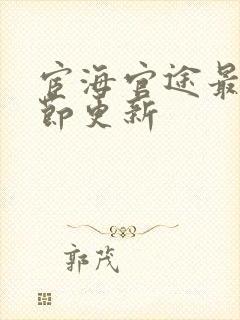 宦海官途最
节更新
郭茂